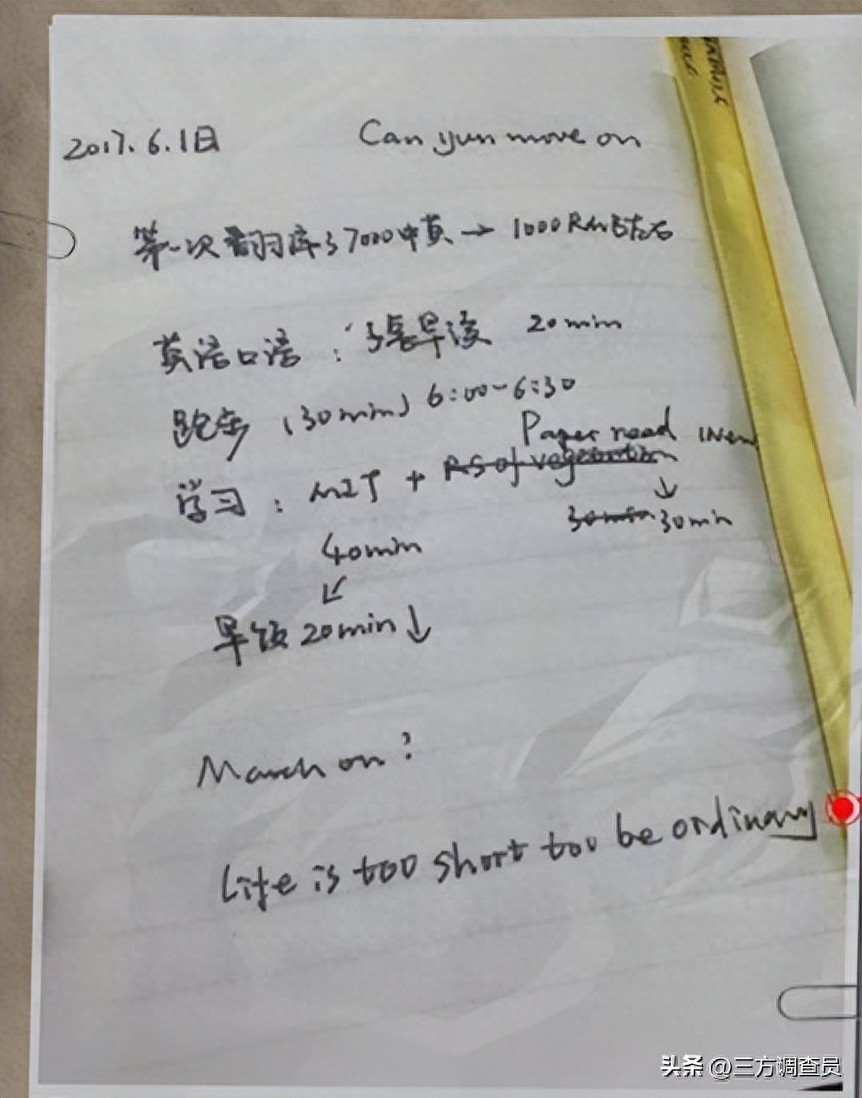 2017.6.1日 Can yun move on
第一次翻译了7000中英 → 1000RMB左右
英语口语：晨早读 20min
跑步 (30min) 6:00-6:30
Paper read
学习：MIT + RS of vegetation
↓
30min 30min
40min
↙
早饭 20min ↓
March on?
Life is too short too be ordinary
头条 @三方调查员